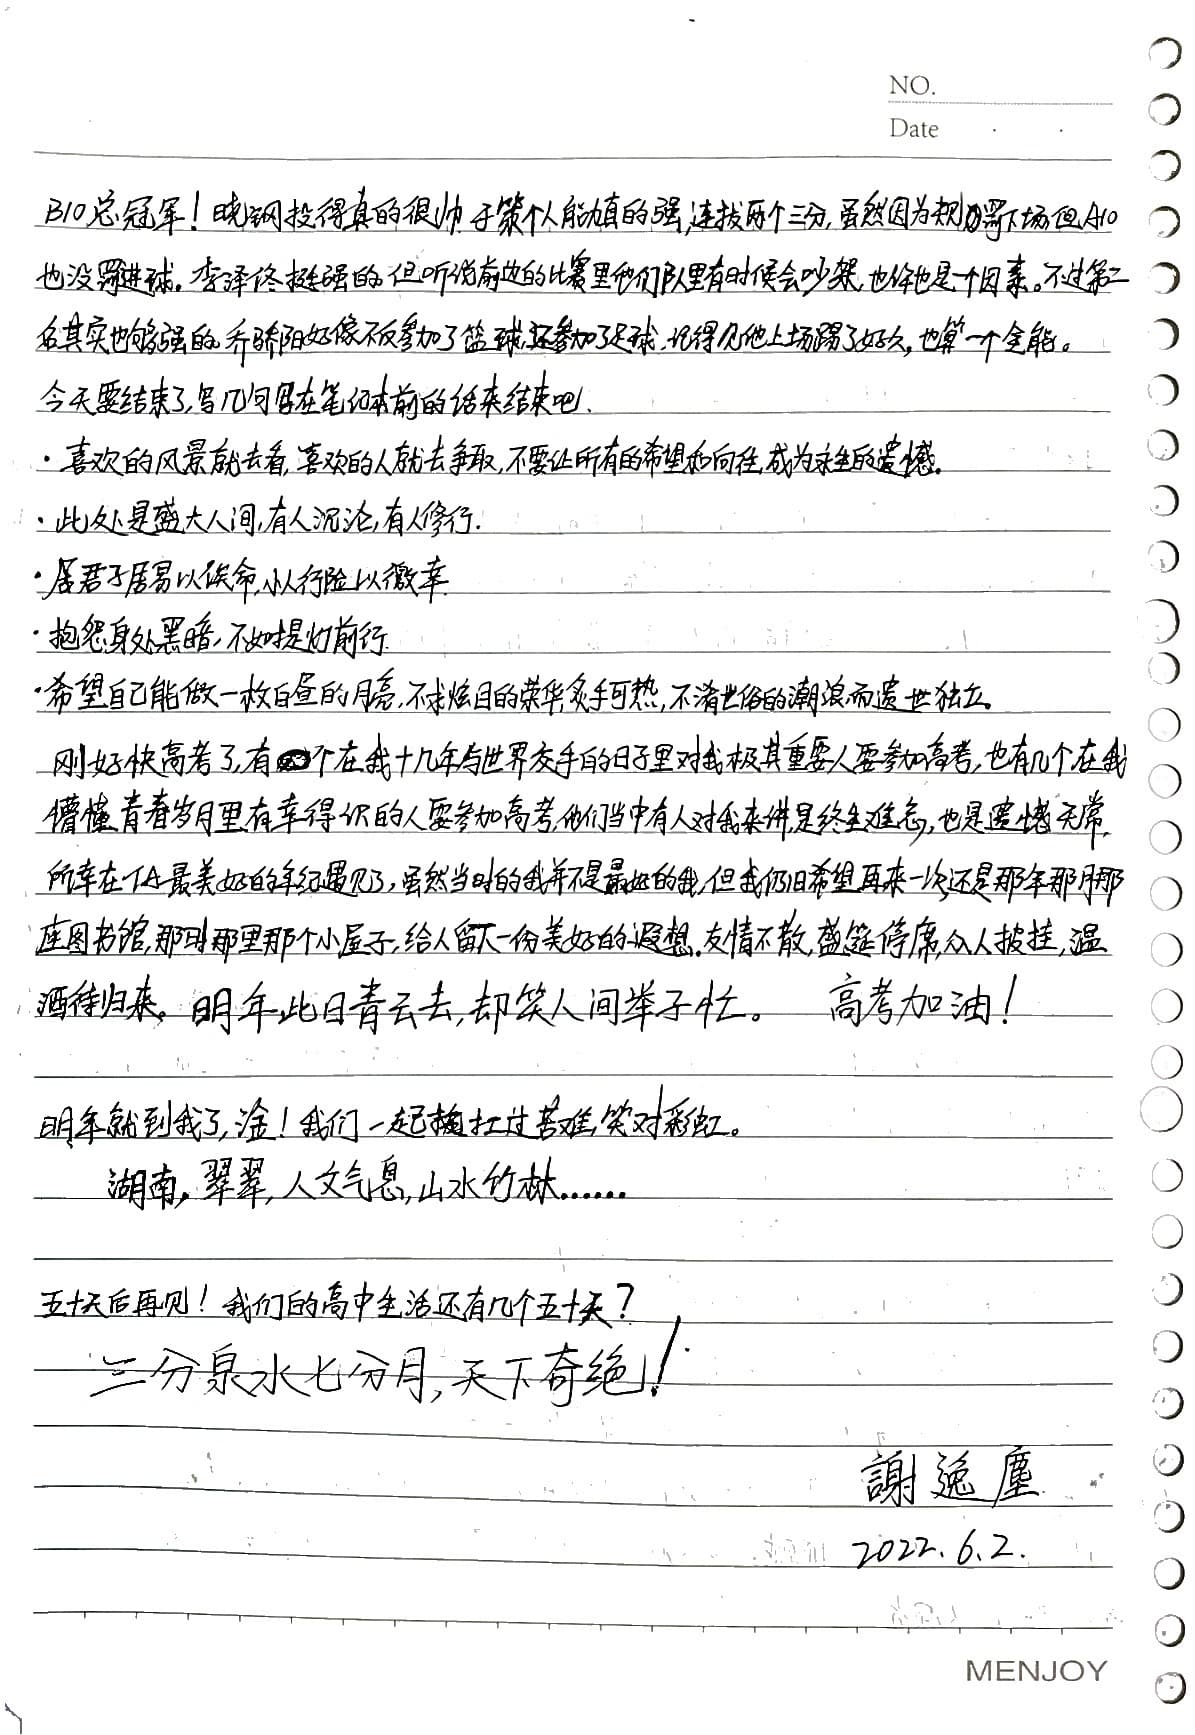 NO.
Date
B10总冠军！晓钢投得真的很帅，于策个人能力真的强，连拔两个三分，虽然因为规则罚下场但A10
也没罚进球。李泽佟挺强的，但听说前边的比赛里他们队里有时候会吵架，也许也是一个因素。不过第二
名其实也够强的，乔骄阳好像不仅参加了篮球，还参加了足球，记得见他上场踢了好久，也算一个全能。
今天要结束了，写几句写在笔记本前的话来结束吧.
·喜欢的风景就去看，喜欢的人就去争取，不要让所有的希望和向往，成为永生的遗憾。
·此处是盛大人间，有人沉沦，有人修行.
·居君子居易以俟命，小人行险以徼幸
·抱怨身处黑暗，不如提灯前行.
·希望自己能做一枚白昼的月亮，不求炫目的荣华，炙手可热，不淆世俗的潮浪而遗世独立。
刚好快高考了，有个在我十几年与世界交手的日子里对我极其重要人要参加高考，也有几个在我
懵懂青春岁月里有幸得识的人要参加高考，他们当中有人对我来讲，是终生难忘，也是遗憾无常，
所幸在TA最美好的年纪遇见了，虽然当时的我并不是最好的我，但我仍旧希望再来一次，还是那年那月那
座图书馆，那那里那个小屋子，给人留下一份美好的遐想。友情不散，盛筵停席，众人披挂，温
酒待归来。明年此日青云去，却笑人间举子忙。 高考加油！
明年就到我了，淦！我们一起扛过苦难，笑对彩虹。
湖南，翠翠，人文气息，山水竹林……
五十天后再见！我们的高中生活还有几个五十天？
三分泉水七分月，天下奇绝！
謝逸塵
2022.6.2.
MENJOY